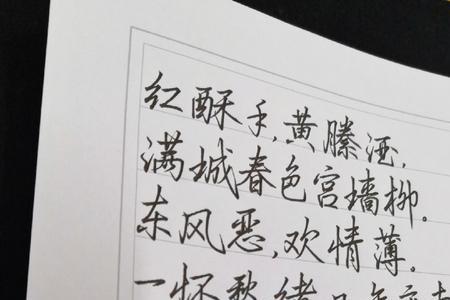 红酥手,黄縢酒,
满城春色宫墙柳。
东风恶,欢情薄。
一怀愁绪